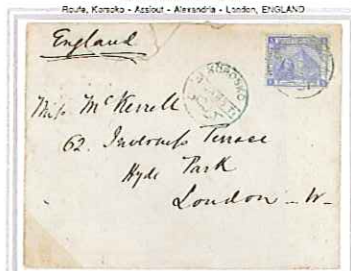 Route, Korosko - Assiout - Alexandria - London, ENGLAND
England
KOROSKO
Miss McKerrell
62. Inverness Terrace
Hyde Park
London - W -